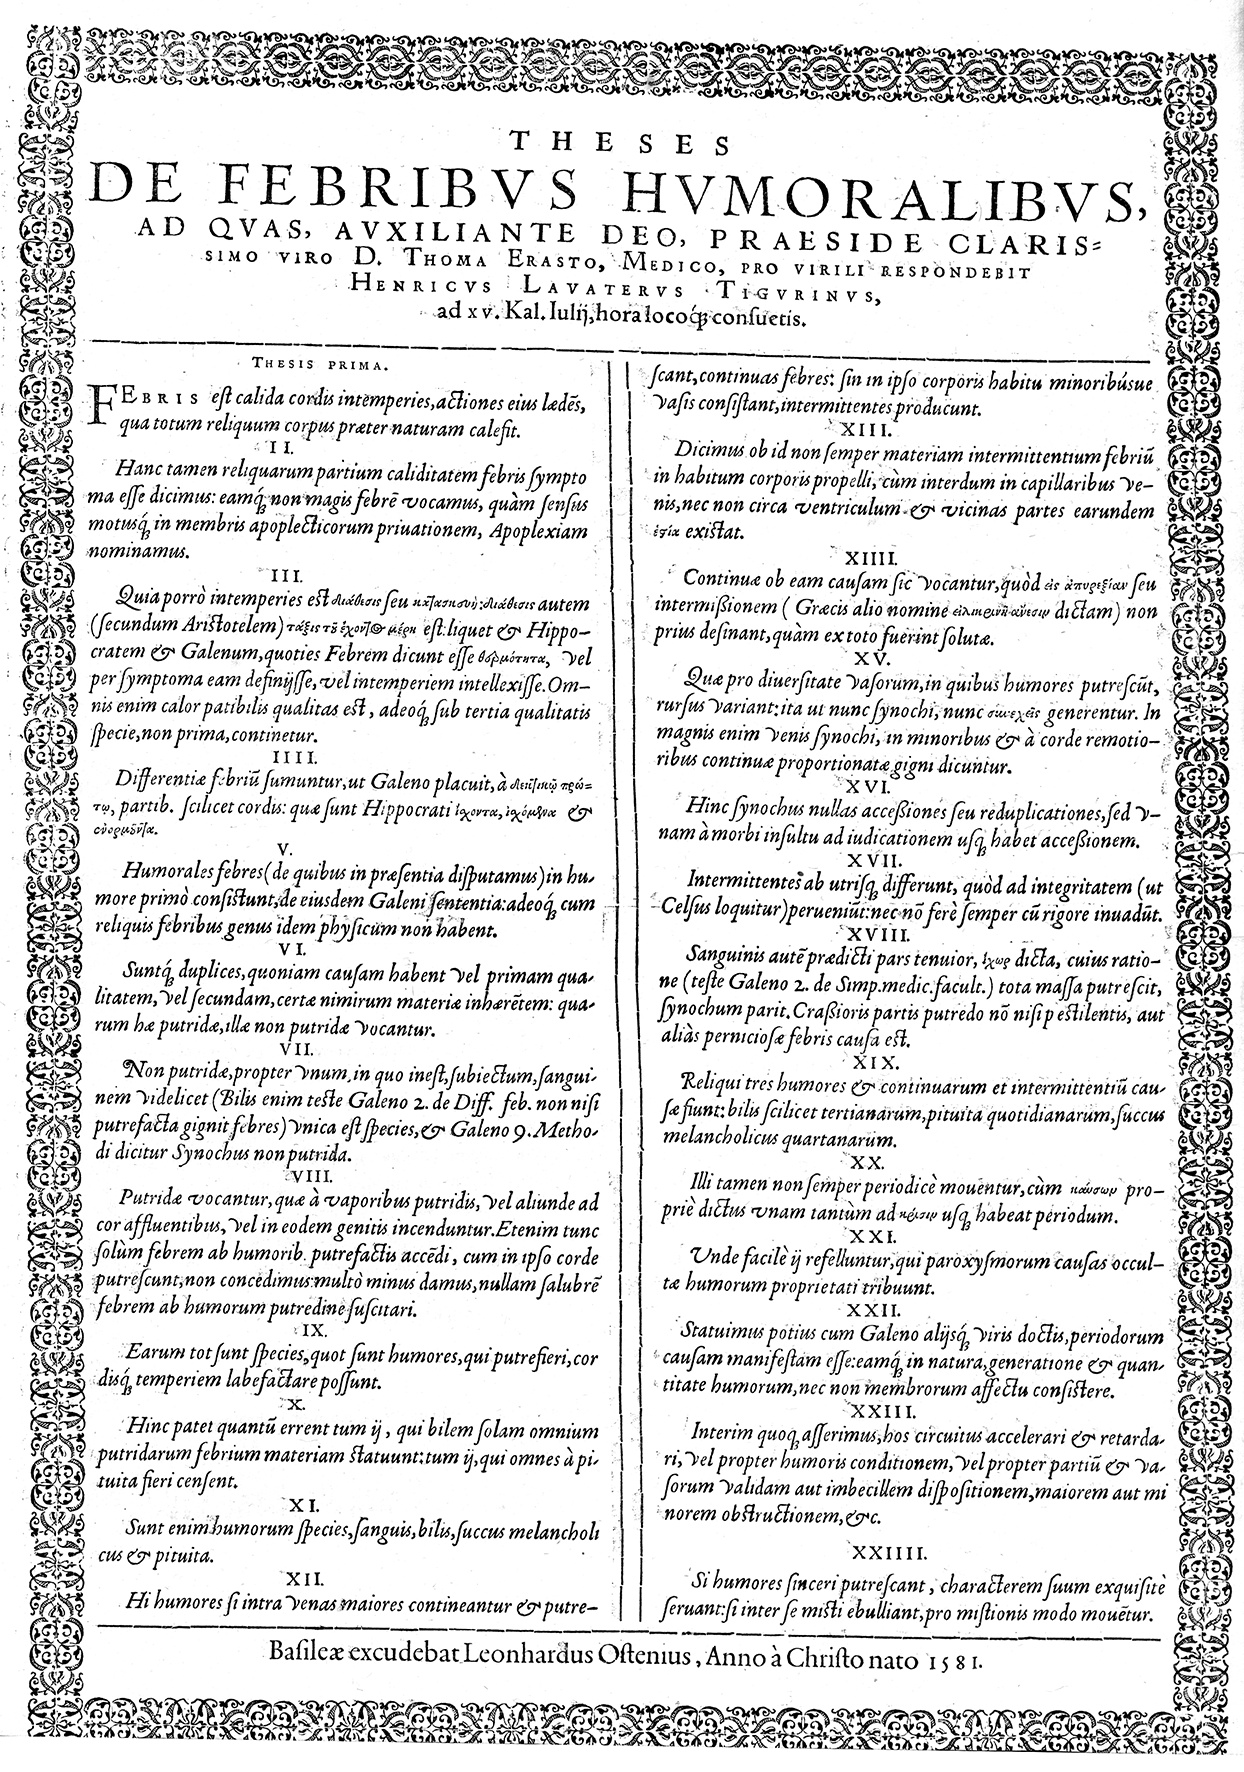 THESES
DE FEBRIBVS HVMORALIBVS,
AD QVAS, AVXILIANTE DEO, PRAESIDE CLARIS=
SIMO VIRO D. THOMA ERASTO, MEDICO, PRO VIRILI RESPONDEBIT
HENRICVS LAVATERVS TIGVRINVS,
ad xv. Kal. Iulij, hora locoq́ꝫ consuetis.
THESIS PRIMA.
FEBRIS est calida cordis intemperies, actiones eius lædẽs,
qua totum reliquum corpus præter naturam calefit.
II.
Hanc tamen reliquarum partium caliditatem febris sympto
ma esse dicimus: eamq́ꝫ non magis febrẽ vocamus, quàm sensus
motusq́ꝫ in membris apoplecticorum priuationem, Apoplexiam
nominamus.
III.
Quia porrò intemperies est διάθεσις seu διάθεσις autem
(secundum Aristotelem) est: liquet & Hippo-
cratem & Galenum, quoties Febrem dicunt esse θερμότητα, vel
per symptoma eam definijsse, vel intemperiem intellexisse. Om-
nis enim calor patibilis qualitas est, adeoq́ꝫ sub tertia qualitatis
specie, non prima, continetur.
IIII.
Differentiæ febriũ sumuntur, ut Galeno placuit, à δεκτικῷ πρώ-
τῳ, partib. scilicet cordis: quæ sunt Hippocrati &
V.
Humorales febres (de quibus in præsentia disputamus) in hu-
more primò consistunt, de eiusdem Galeni sententia: adeoq́ꝫ cum
reliquis febribus genus idem physicum non habent.
VI.
Suntq́ꝫ duplices, quoniam causam habent vel primam qua-
litatem, vel secundam, certæ nimirum materiæ inhærẽtem: qua-
rum hæ putridæ, illæ non putridæ vocantur.
VII.
Non putridæ, propter vnum, in quo inest, subiectum, sangui-
nem videlicet (Bilis enim teste Galeno 2. de Diff. feb. non nisi
putrefacta gignit febres) vnica est species, & Galeno 9. Metho-
di dicitur Synochus non putrida.
VIII.
Putridæ vocantur, quæ à vaporibus putridis, vel aliunde ad
cor affluentibus, vel in eodem genitis incenduntur. Etenim tunc
solùm febrem ab humorib. putrefactis accẽdi, cum in ipso corde
putrescunt, non concedimus: multò minus damus, nullam salubrẽ
febrem ab humorum putredine suscitari.
IX.
Earum tot sunt species, quot sunt humores, qui putrefieri, cor
disq́ꝫ temperiem labefactare possunt.
X.
Hinc patet quantũ errent tum ij, qui bilem solam omnium
putridarum febrium materiam statuunt: tum ij, qui omnes à pi-
tuita fieri censent.
XI.
Sunt enim humorum species, sanguis, bilis, succus melancholi
cus & pituita.
XII.
Hi humores si intra venas maiores contineantur & putre-
scant, continuas febres: sin in ipso corporis habitu minoribúsue
vasis consistant, intermittentes producunt.
XIII.
Dicimus ob id non semper materiam intermittentium febriũ
in habitum corporis propelli, cùm interdum in capillaribus ve-
nis, nec non circa ventriculum & vicinas partes earundem
ἑστία existat.
XIIII.
Continuæ ob eam causam sic vocantur, quòd εἰς ἀπυρεξίαν seu
intermißionem (Græcis alio nomine dictam) non
prius desinant, quàm ex toto fuerint solutæ.
XV.
Quæ pro diuersitate vasorum, in quibus humores putrescũt,
rursus variant: ita ut nunc synochi, nunc συνεχεῖς generentur. In
magnis enim venis synochi, in minoribus & à corde remotio-
ribus continuæ proportionatæ gigni dicuntur.
XVI.
Hinc synochus nullas acceßiones seu reduplicationes, sed v-
nam à morbi insultu ad iudicationem usq́ꝫ habet acceßionem.
XVII.
Intermittentes ab utrisq́ꝫ differunt, quòd ad integritatem (ut
Celsus loquitur) perueniũt: nec nõ ferè semper cũ rigore inuadũt.
XVIII.
Sanguinis autẽ prædicti pars tenuior, ἰχὼρ dicta, cuius ratio-
ne (teste Galeno 2. de Simp. medic. facult.) tota massa putrescit,
synochum parit. Craßioris partis putredo nõ nisi pestilentis, aut
aliàs perniciosæ febris causa est.
XIX.
Reliqui tres humores & continuarum et intermittentiũ cau-
sæ fiunt: bilis scilicet tertianarum, pituita quotidianarum, succus
melancholicus quartanarum.
XX.
Illi tamen non semper periodicè mouentur, cùm καύσων pro-
priè dictus vnam tantùm ad κρίσιν usq́ꝫ habeat periodum.
XXI.
Unde facilè ij refelluntur, qui paroxysmorum causas occul-
tæ humorum proprietati tribuunt.
XXII.
Statuimus potius cum Galeno alijsq́ꝫ viris doctis, periodorum
causam manifestam esse: eamq́ꝫ in natura, generatione & quan-
titate humorum, nec non membrorum affectu consistere.
XXIII.
Interim quoq́ꝫ asserimus, hos circuitus accelerari & retarda-
ri, vel propter humoris conditionem, vel propter partiũ & va-
sorum validam aut imbecillem dispositionem, maiorem aut mi
norem obstructionem, &c.
XXIIII.
Si humores sinceri putrescant, characterem suum exquisitè
seruant: si inter se misti ebulliant, pro mistionis modo mouẽtur.
Basileæ excudebat Leonhardus Ostenius, Anno à Christo nato 1581.